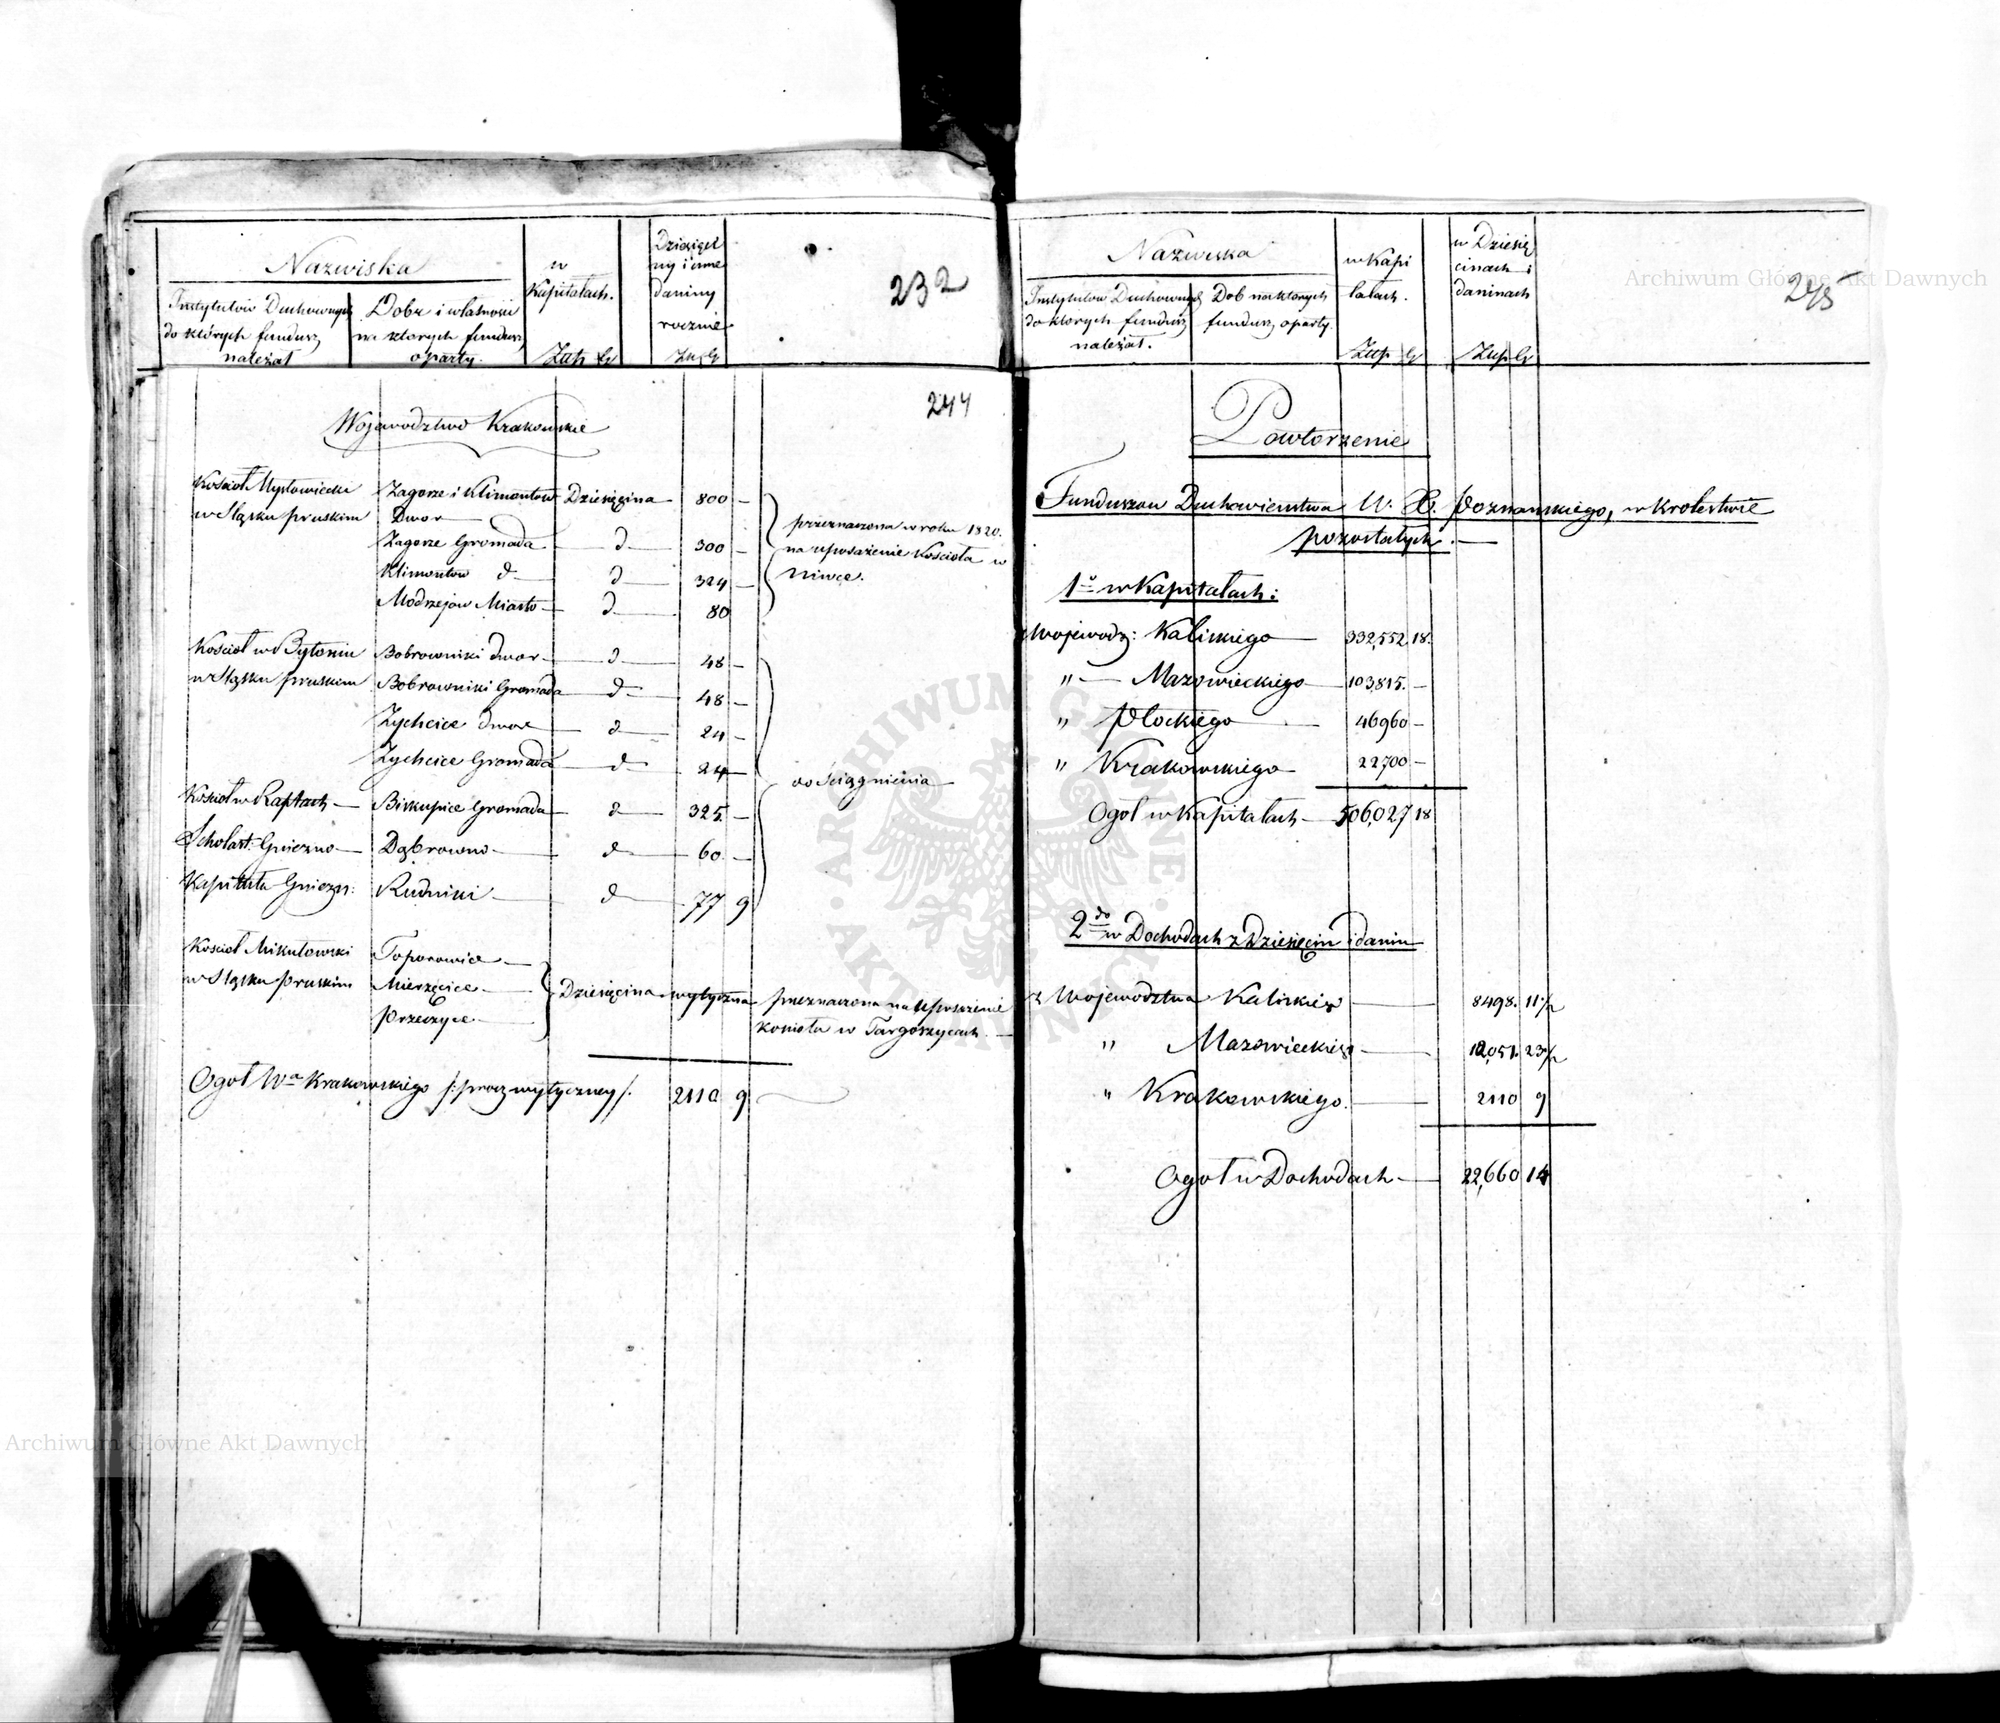 Nazwiska
Instytutów Duchownych
do których fundusz
należał
Dobr i własności
na ktorych fundusz
oparty.
w
Kapitałach.
Złp Gr
Dziesięci
ny i inne
daniny
rocznie
Złp Gr
232
244
Wojewodztwo Krakowskie
Kościoł Mysłowiecki Zagorze i Klimontow Dziesięcina 800 —
w Sląsku pruskim Dwor
Zagorze Gromada — d — 300 —
Klimontow d — d — 324 —
Modrzejow Miasto — d — 80
przeznaczona w roku 1820.
na uposażenie Kościoła w
Niwce.
Kościoł w Bytoniu Bobrowniki dwor — d — 48 —
w Sląsku pruskim Bobrowniki Gromada d — 48 —
Zychcice dwor — d — 24 —
Zychcice Gromada — d — 24 —
do ściągnienia
Kościoł w Reptach — Biskupice Gromada — d — 325 —
Scholast: Gniezno — Dąbrowno — d — 60 —
Kapituła Gniezn: Rudniki — d — 77 9
Kościoł Mikułowski Toporowice —
w Sląsku pruskim Mierzęcice — Dziesięcina wytyczna przeznaczona na Uposażenie
Przeczyce — kościoła w Targoszycach. —
Ogół Wa Krakowskiego /: procz wytyczney /. 2110 9
Nazwiska
Instytutow Duchownych
do ktorych fundusz
należał.
Dob na ktorych
fundusz oparty.
w Kapi
tałach.
Złp Gr
w Dziesię
cinach i
daninach
Złp Gr
245
Powtorzenie
Funduszow Duchowienstwa W. X. Poznanskiego, w Krolestwie
pozostałych. —
1o w Kapitałach:
Wojewodz: Kaliskiego — 332,552. 18.
" — Mazowieckiego — 103,815. —
" Płockiego — 46960 —
" Krakowskiego 22700 —
Ogoł w Kapitałach — 506,027 18
2do w Dochodach z Dziesięcin i danin
z Wojewodztwa Kaliskiego — 8498. 11 1/2
" Mazowieckiego — 12,051. 23 1/2
" Krakowskiego. — 2110 9
Ogoł w Dochodach — 22,660 14
Archiwum Główne Akt Dawnych
Archiwum Główne Akt Dawnych
ARCHIWUM GŁÓWNE AKT DAWNYCH